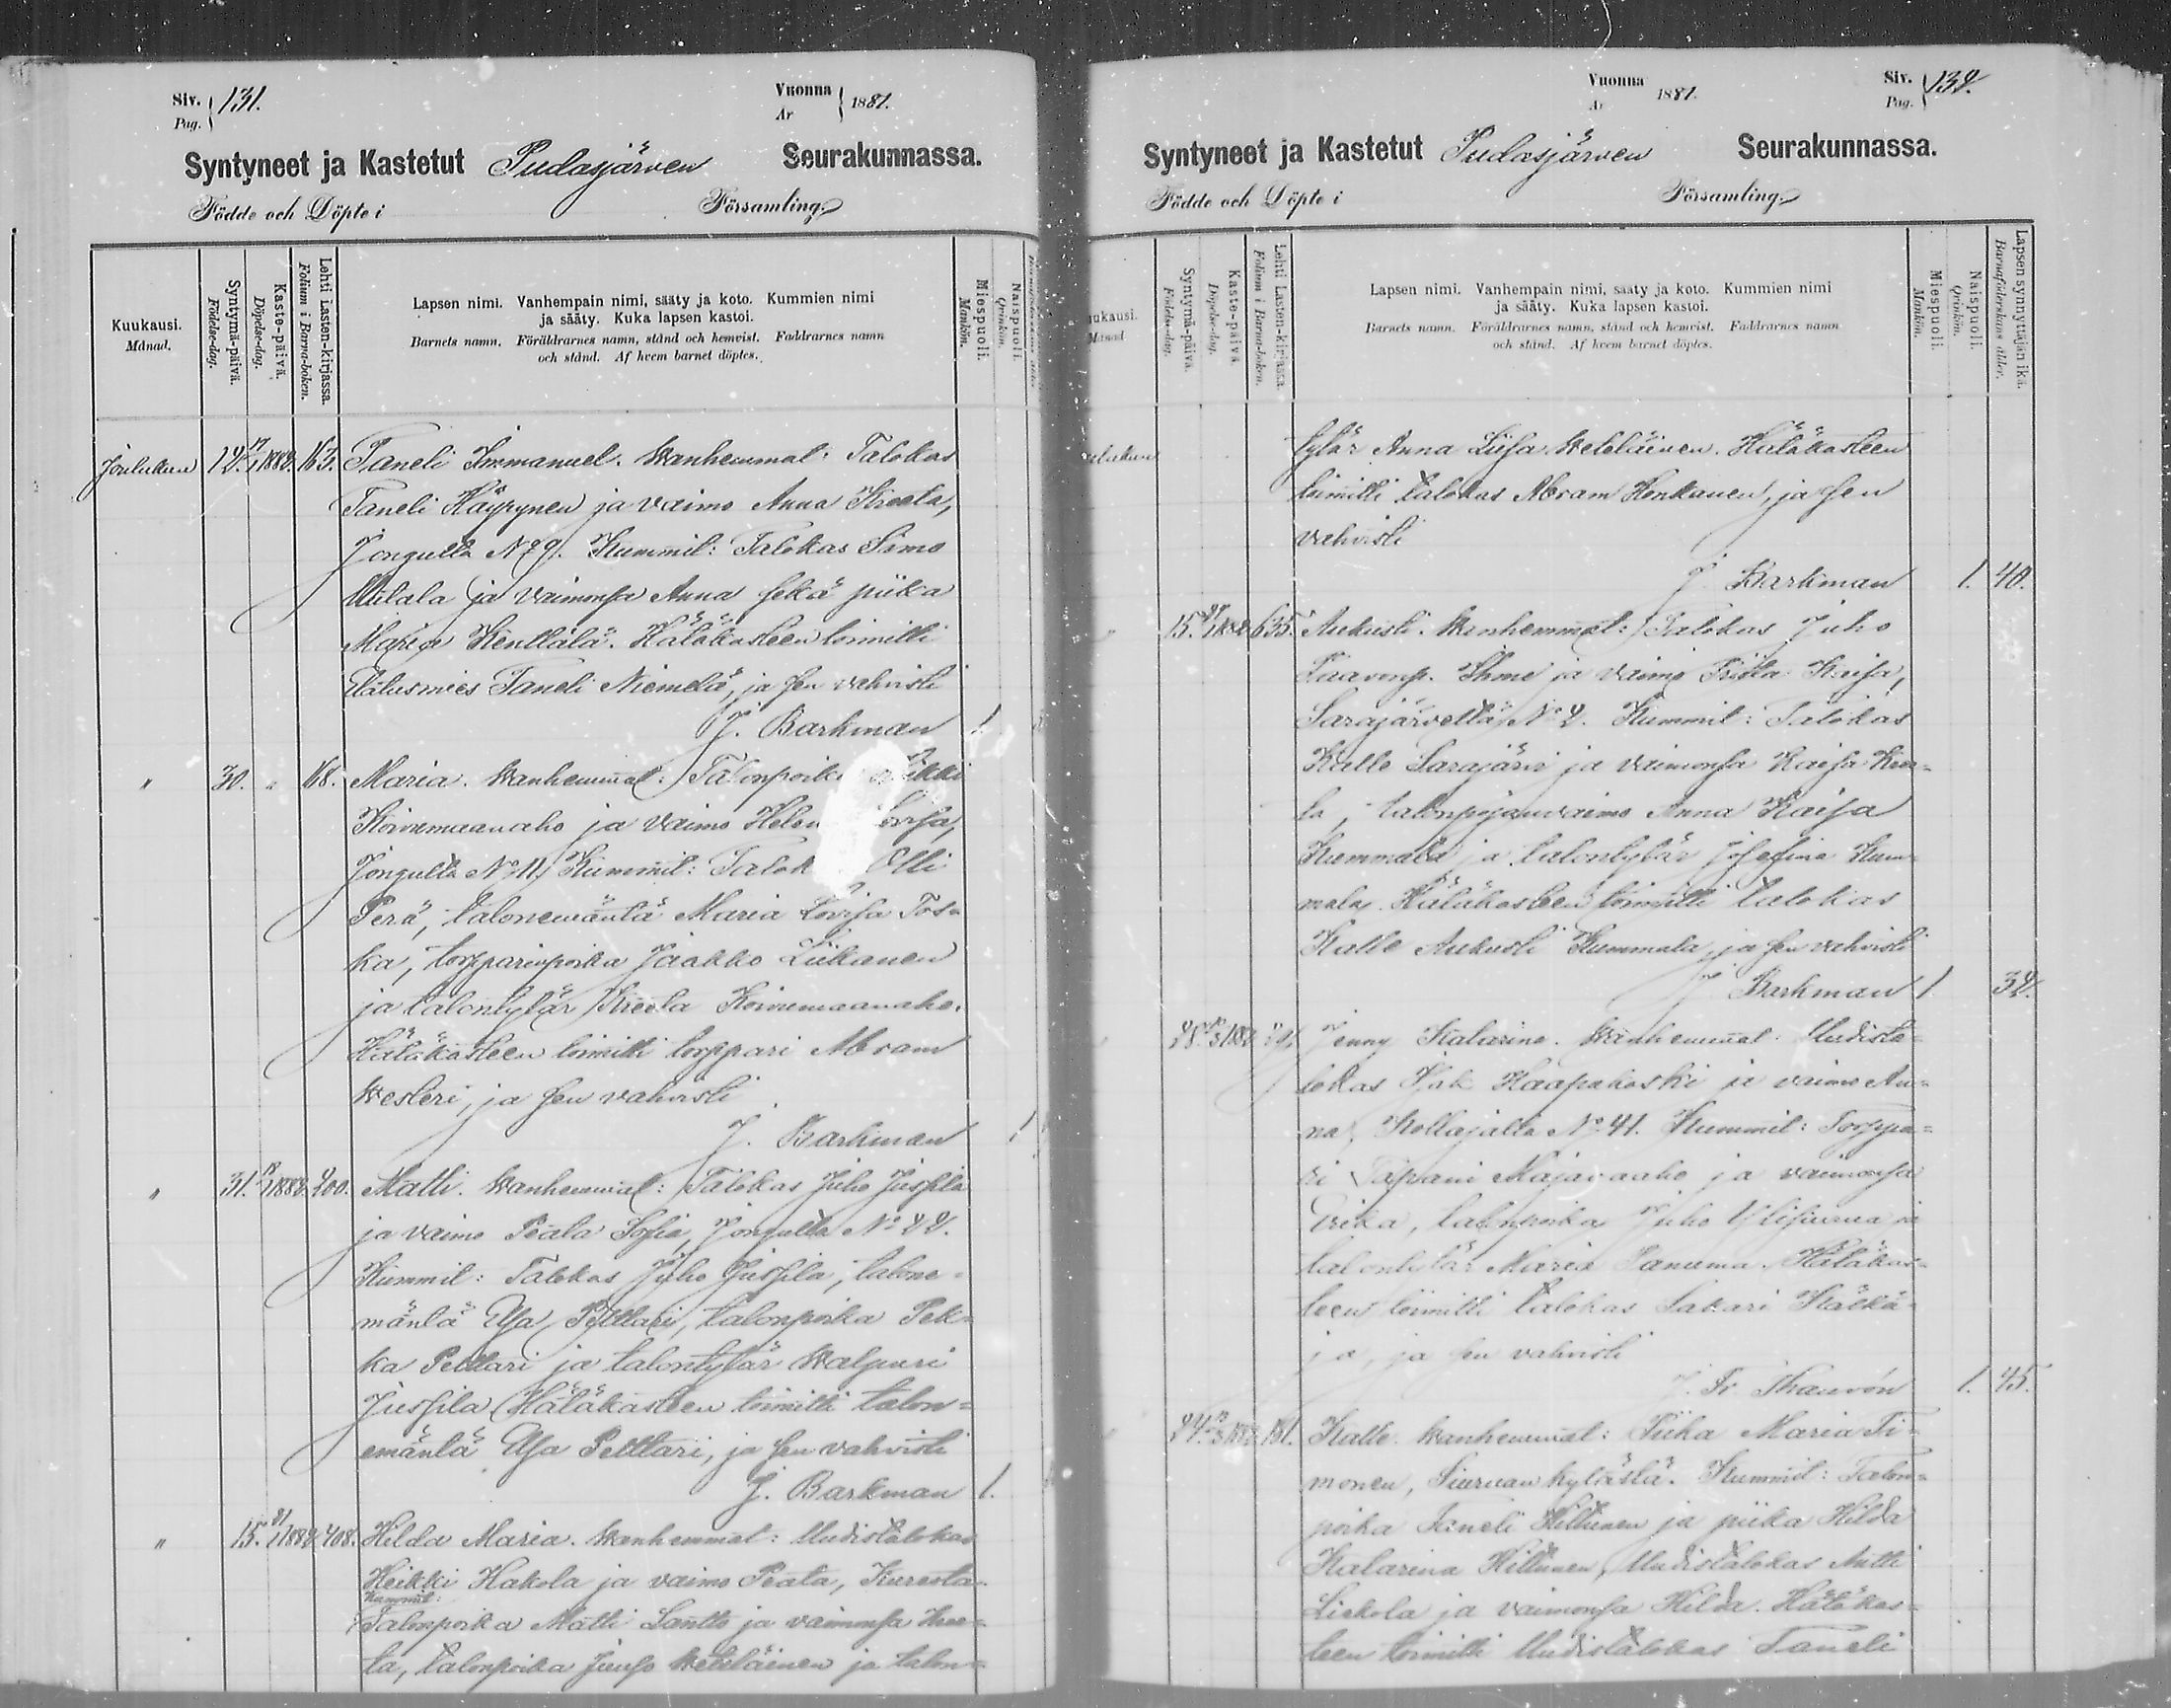 Siv. 131.
Pag.
Vuonna 1881.
År
Syntyneet ja Kastetut Pudasjärven Seurakunnassa.
Födde och Döpte i Församling.
Kuukausi.
Månad.
Syntymä-päivä.
Födelse-dag.
Kaste-päivä.
Döpelse-dag.
Lehti Lasten-kirjassa.
Folium i Barna-boken.
Lapsen nimi. Vanhempain nimi, sääty ja koto. Kummien nimi
ja sääty. Kuka lapsen kastoi.
Barnets namn. Föräldrarnes namn, stånd och hemvist. Faddrarnes namn
och stånd. Af hvem barnet döptes.
Miespuoli.
Mankön.
Naispuoli.
Qvinkön.
Joulukuu 163. Taneli Immanuel. Wanhemmat: Talokas
Taneli Häyrynen ja vaimo Anna Kreeta,
Jongulta No 9. Kummit: Talokas Simo
ja vaimonsa Anna sekä piika
Maria Kenttälä. Hätäkasteen toimitti
Taneli Niemelä, ja sen vahvisti
J. Barkman 1.
" 30. " 168. Maria. Wanhemmat:
Koivumaanaho ja vaimo
Jongulta No 11. Kummit: Olli
Perä, talonemäntä Maria Lovisa Tos-
ka, torpparinpoika Jaakko Liikanen
ja talontytär Kreeta Koivumaanaho.
Hätäkasteen toimitti torppari Abram
Westeri, ja sen vahvisti
J. Barkman 1
" 31. 200. Matti. Wanhemmat: Talokas Juho Jussila
ja vaimo Peata Sofia, Jongulta No 22.
Kummit: Talokas Juho Jussila, talone-
mäntä Ulja Pelttari, talonpoika Pek-
ka Pelttari ja talontytär Walpuri
Jussila. Hätäkasteen toimitti talon-
emäntä Ulja Pelttari, ja sen vahvisti
J. Barkman 1.
" 15. 408. Hilda Maria. Wanhemmat: Uudistalokas
Heikki Hakola ja vaimo Peata,
Kummit:
Talonpoika Matti Santto ja vaimonsa Kree-
ta, talonpoika Juuso Weteläinen ja talon-
Vuonna 1881.
År
Siv. 132.
Pag.
Syntyneet ja Kastetut Pudasjärven Seurakunnassa.
Födde och Döpte i Församling.
Kuukausi.
Månad
Syntymä-päivä.
Födelse-dag.
Kaste-päivä.
Döpelse-dag.
Lehti Lasten-kirjassa.
Folium i Barna-boken.
Lapsen nimi. Vanhempain nimi, sääty ja koto. Kummien nimi
ja sääty. Kuka lapsen kastoi.
Barnets namn. Föräldrarnes namn, stånd och hemvist. Faddrarnes namn
och stånd. Af hvem barnet döptes.
Miespuoli.
Mankön.
Naispuoli.
Qvinkön.
Lapsen synnyttäjän ikä.
Barnaföderskans ålder.
tytär Anna Liisa Weteläinen. Hätäkasteen
toimitti talokas Abram Honkanen, ja sen
vahvisti
J. Barkman 1. 40.
15. 635. Aukusti. Wanhemmat: Talokas Juho
Paavonp. Ihme ja vaimo Kaisa,
Sarajärveltä No 2. Kummit: Talokas
Kalle Sarajärvi ja vaimonsa Kaisa Kree-
ta, talonpojanvaimo Anna Kaisa
Kummala ja talontytär Josefina Kum-
mala. Hätäkasteen toimitti talokas
Kalle Aukusti Kummala, ja sen vahvisti
J. Barkman 1 32.
28. Jenny Katarina. Wanhemmat: Uudista-
lokas Haapakoski ja vaimo An-
na, Kollajalta No 41. Kummit: Torppa-
ri Tapani Majavaaho ja vaimonsa
talonpoika Juho Ylisiurua ja
talontytär Maria Panuma. Hätäkas-
teen toimitti talokas Sakari
ja, ja sen vahvisti
J. Fr. Thauvón 1. 45.
24. 181. Kalle. Wanhemmat: Piika Maria Ti-
monen, Siuruan kylästä. Kummit: Talon-
poika Taneli Hiltunen ja piika Hilda
Katarina Hiltunen, Uudistalokas Antti
Liekola ja vaimonsa Hilda. Hätäkas-
teen toimitti Uudistalokas Taneli